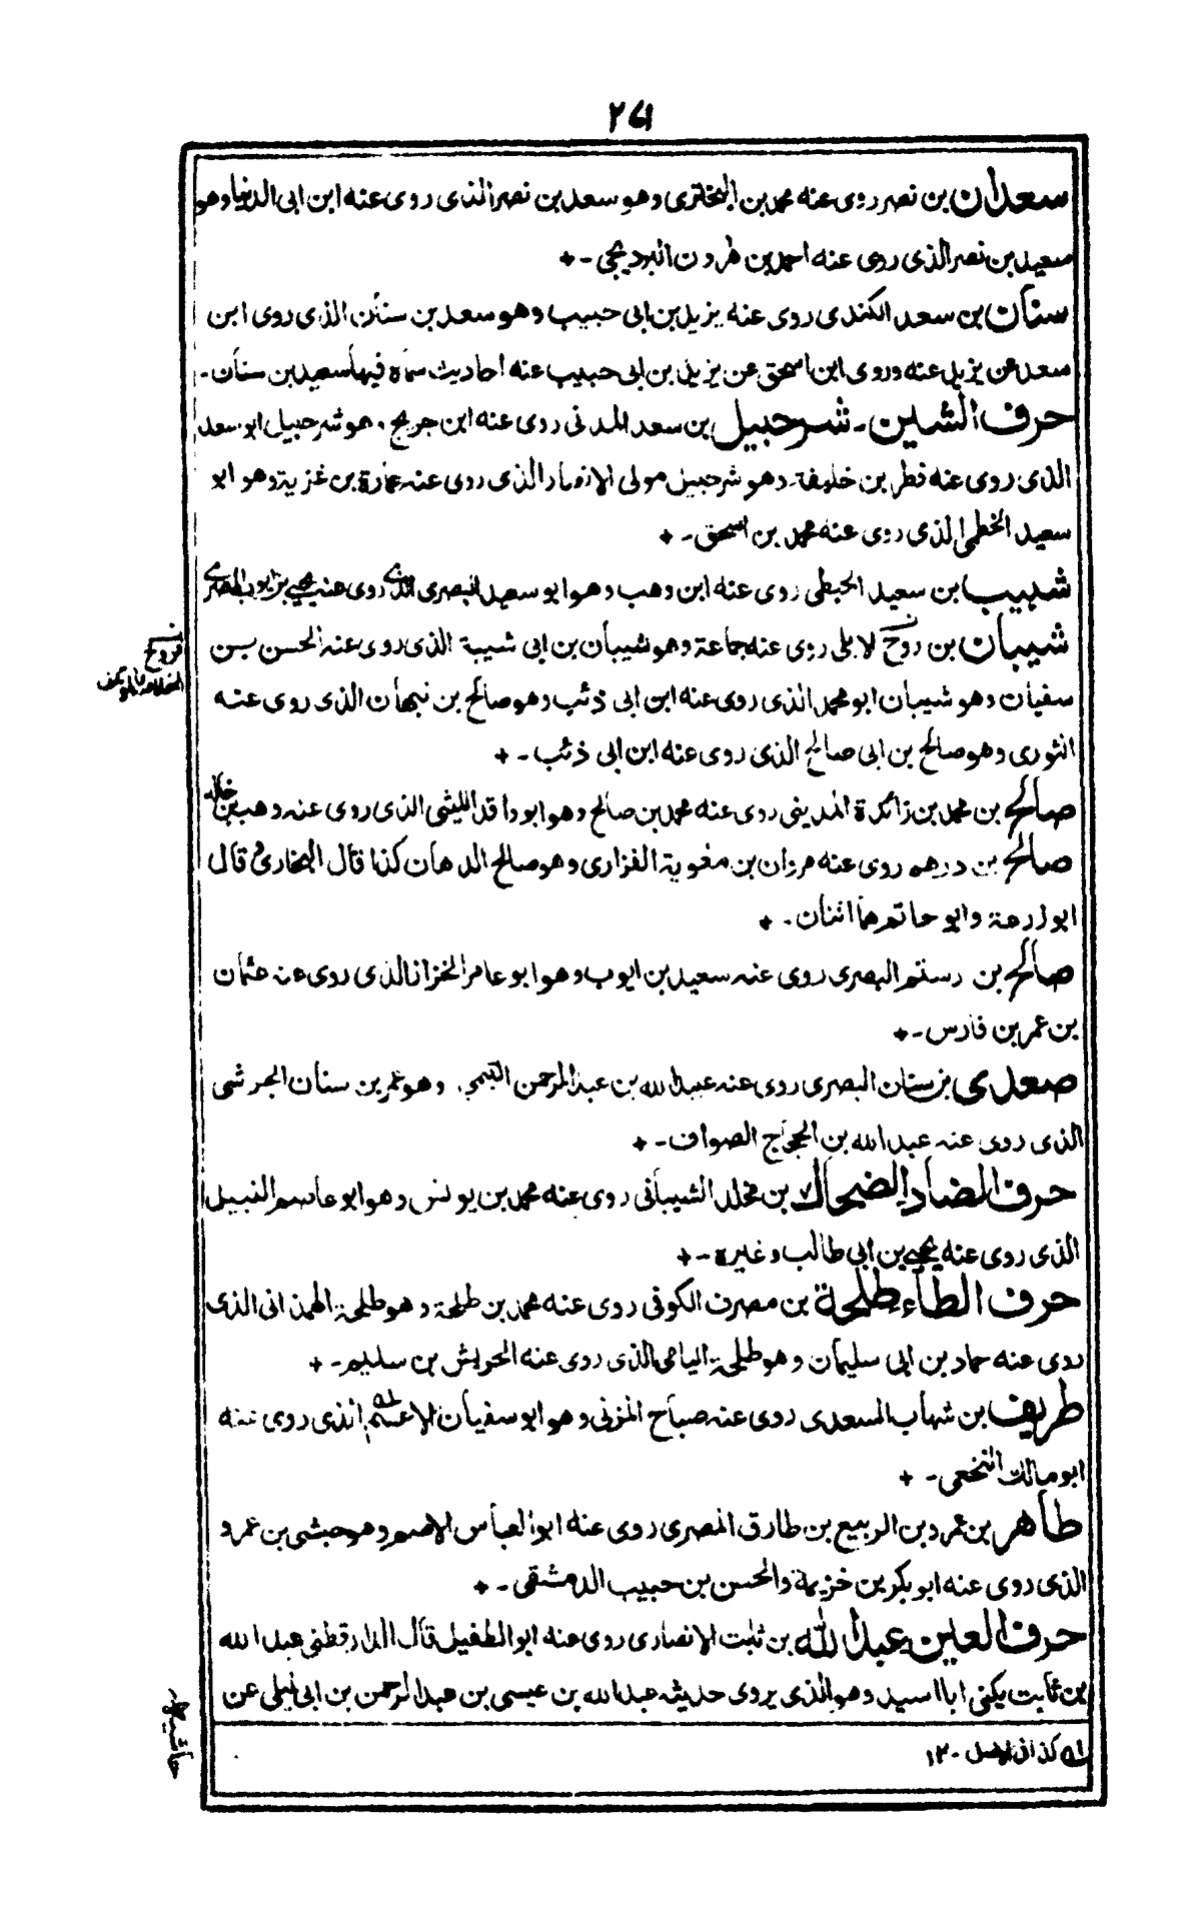 ٢٧١
سعدان بن نصر روى عنه محمد بن البختري وهو سعد بن نصر الذى روى عنه ابن ابى الدنيا وهو
سعيد بن نصر الذى روى عنه احمد بن هرون البرديجى -+
سنان بن سعد الكندى روى عنه يزيد بن ابى حبيب وهو سعد بن سنان الذى روى ابن
سعد عن يزيد عنه وروى ابن اسحق عن يزيد بن ابى حبيب عنه احاديث سماه فيها سعيد بن سنان -
حرف الشين - شرحبيل بن سعد المدنى روى عنه ابن جريج وهو شرحبيل ابو سعد
الذى روى عنه فطر بن خليفة وهو شرحبيل مولى الانصار الذى روى عنه عمارة بن غزية وهو ابو
سعيد الخطمى الذى روى عنه محمد بن اسحق -+
شبيب بن سعيد الحبطى روى عنه ابن وهب وهو ابو سعيد البصرى الذى روى عنه يحيى بن ايوب المصرى
شيبان بن روح الابلى روى عنه جماعة وهو شيبان بن ابى شيبة الذى روى عنه الحسن بن
سفيان وهو شيبان ابو محمد الذى روى عنه ابن ابى ذئب وهو صالح بن نبهان الذى روى عنه
الثورى وهو صالح بن ابى صالح الذى روى عنه ابن ابى ذئب -+
صالح بن محمد بن زائدة المدينى روى عنه محمد بن صالح وهو ابو واقد الليثى الذى روى عنه وهب بن خالد
صالح بن درهم روى عنه مروان بن معوية الفزارى وهو صالح الدهان كذا قال البخارى قال
ابو زرعة وابو حاتم هما اثنان -+
صالح بن رستم البصرى روى عنه سعيد بن ايوب وهو ابو عامر الخزاز الذى روى عنه عثمان
بن عمر بن فارس -+
صعدى بن سنان البصرى روى عنه عبد الله بن عبد الرحمن وهو عمر بن سنان الجرشى
الذى روى عنه عبد الله بن الحجاج الصواف -+
حرف الضاد الضحاك بن مخلد الشيبانى روى عنه محمد بن يونس وهو ابو عاصم النبيل
الذى روى عنه يحيى بن ابى طالب وغيره -+
حرف الطاء طلحة بن مصرف الكوفى روى عنه محمد بن طلحة وهو طلحة الهمدانى الذى
روى عنه حماد بن ابى سليمان وهو طلحة اليامى الذى روى عنه الحريش بن سليم -+
طريف بن شهاب السعدى روى عنه صباح المزنى وهو ابو سفيان الاعسم الذى روى عنه
ابو مالك النخعى -+
طاهر بن عمرو بن الربيع بن طارق المصرى روى عنه ابو العباس الاصم وهو حبشى بن عمرو
الذى روى عنه ابو بكر بن خزيمة والحسن بن حبيب الدمشقى -+
حرف العين عبد الله بن ثابت الانصارى روى عنه ابو الطفيل قال الدارقطنى عبد الله
بن ثابت يكنى ابا اسيد وهو الذى يروى حديثه عبد الله بن عيسى بن عبد الرحمن بن ابى ليلى عن
كذا فى الاصل -١٢
فروخ
حاشية